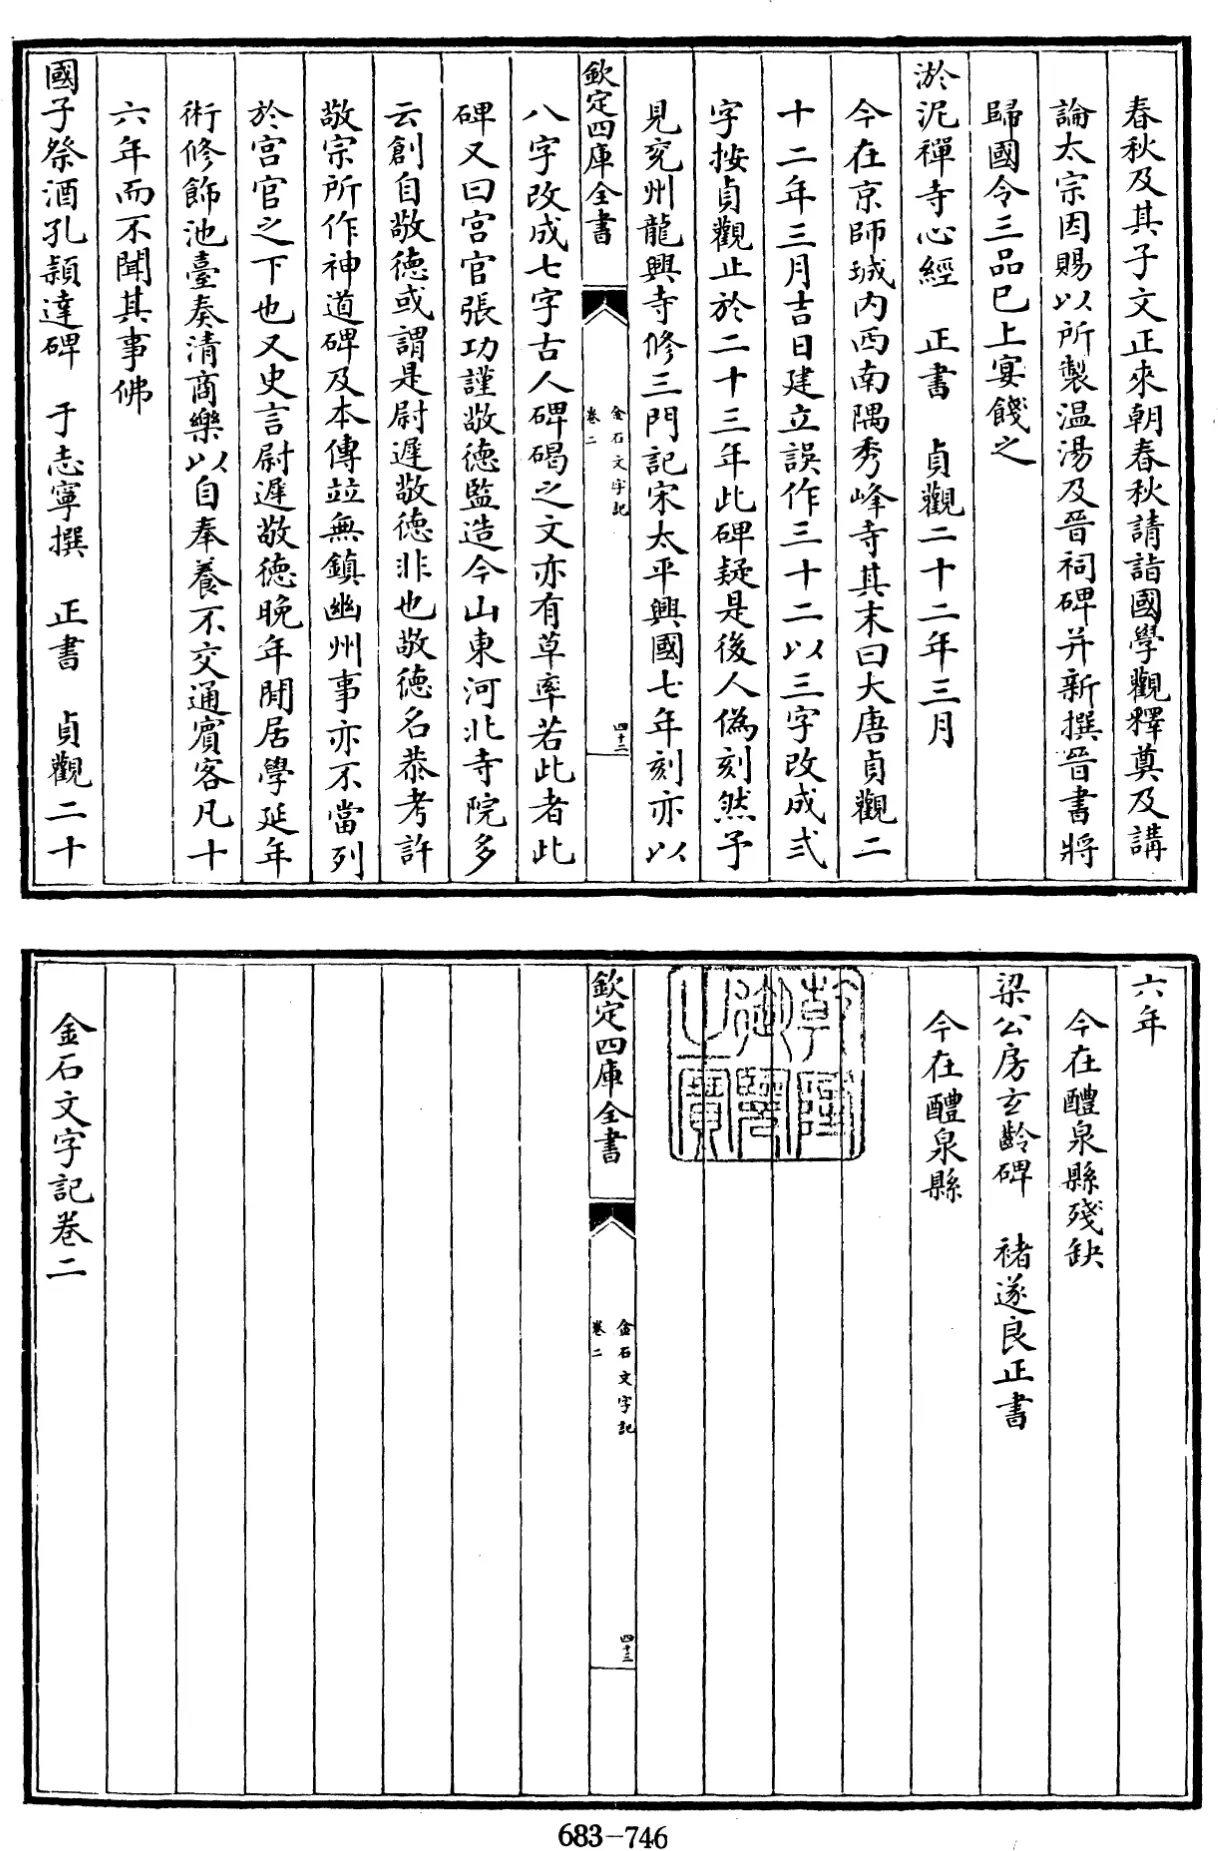 春秋及其子文正來朝春秋請詣國學觀釋奠及講
論太宗因賜以所製温湯及晉祠碑并新撰晉書將
歸國令三品已上宴餞之
淤泥禪寺心經　正書　貞觀二十二年三月
今在京師城内西南隅秀峰寺其末曰大唐貞觀二
十二年三月吉日建立誤作三十二以三字改成弍
字按貞觀止於二十三年此碑疑是後人僞刻然予
見兖州龍興寺修三門記宋太平興國七年刻亦以
欽定四庫全書
金石文字記
卷二
四十二
八字改成七字古人碑碣之文亦有草率若此者此
碑又曰宫官張功謹敬德監造今山東河北寺院多
云創自敬德或謂是尉遲敬德非也敬德名恭考許
敬宗所作神道碑及本傳竝無鎮幽州事亦不當列
於宫官之下也又史言尉遲敬德晚年閒居學延年
術修飾池臺奏清商樂以自奉養不交通賓客凡十
六年而不聞其事佛
國子祭酒孔穎達碑　于志寧撰　正書　貞觀二十
六年
今在醴泉縣殘缺
梁公房玄齡碑　褚遂良正書
今在醴泉縣
乾隆御覽之寶
欽定四庫全書
金石文字記
卷二
四十三
金石文字記卷二
683-746